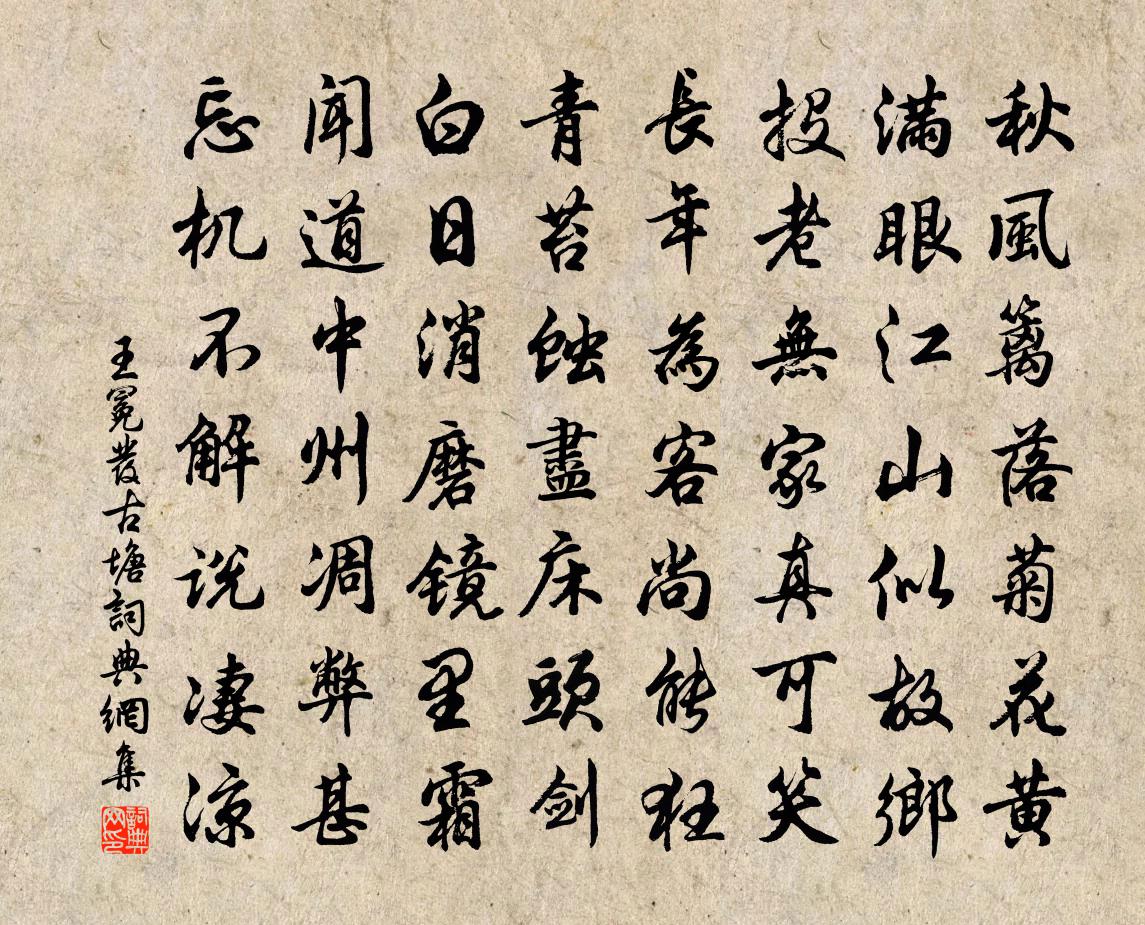 秋風篱落菊花黄
满眼江山似故鄉
投老無家真可笑
長年為客尚能狂
青苔蝕盡床頭劍
白日消磨镜里霜
闻道中州凋弊甚
忘机不解说凄凉
王冕發古塘詞典網集
詞典网印